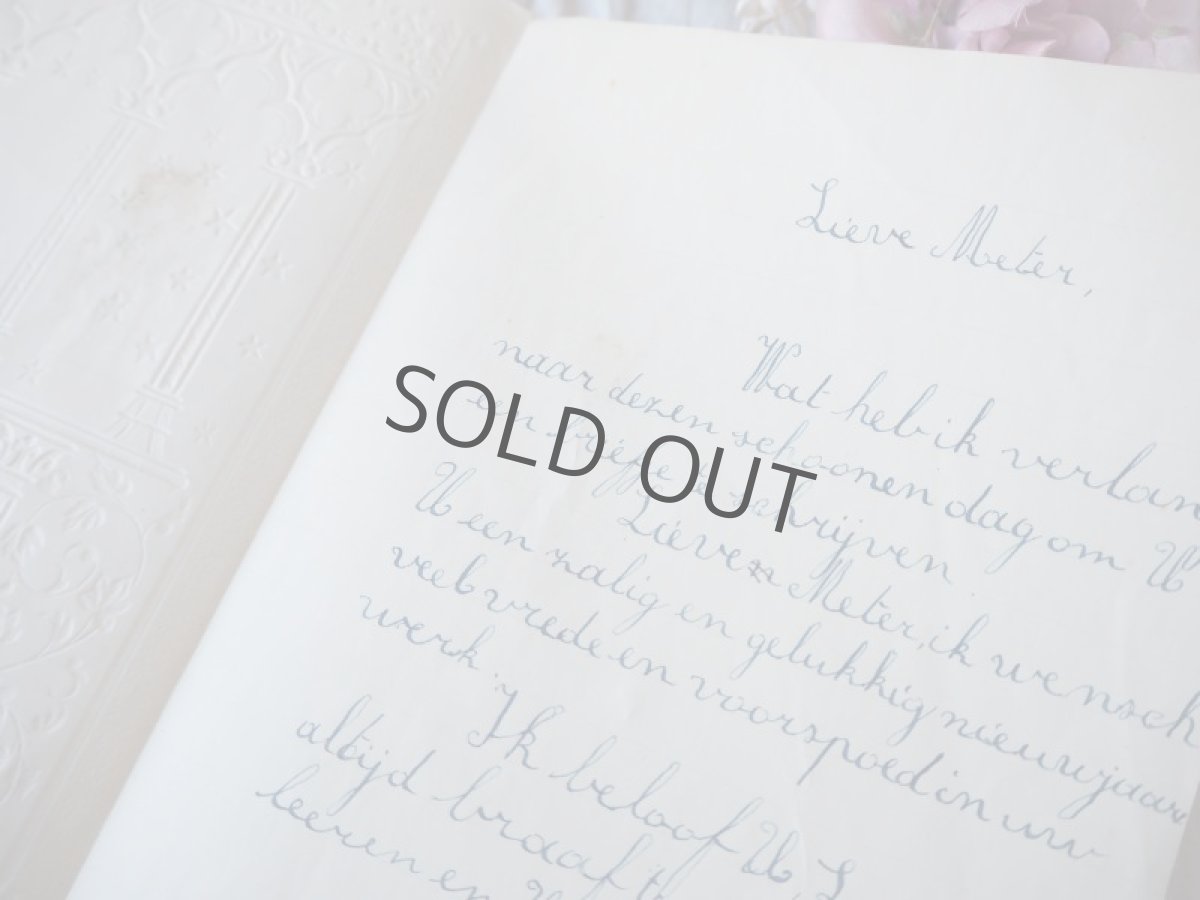 Lieve Meter,
Wat heb ik verlan
naar dezen schoonen dag om U
en briefje te schrijven
Lieve Meter, ik wensch
U een zalig en gelukkig nieuwjaar
veel vrede en voorspoed in uw
werk.
Ik beloof U, L
altijd braaf t
leeren en
SOLD OUT